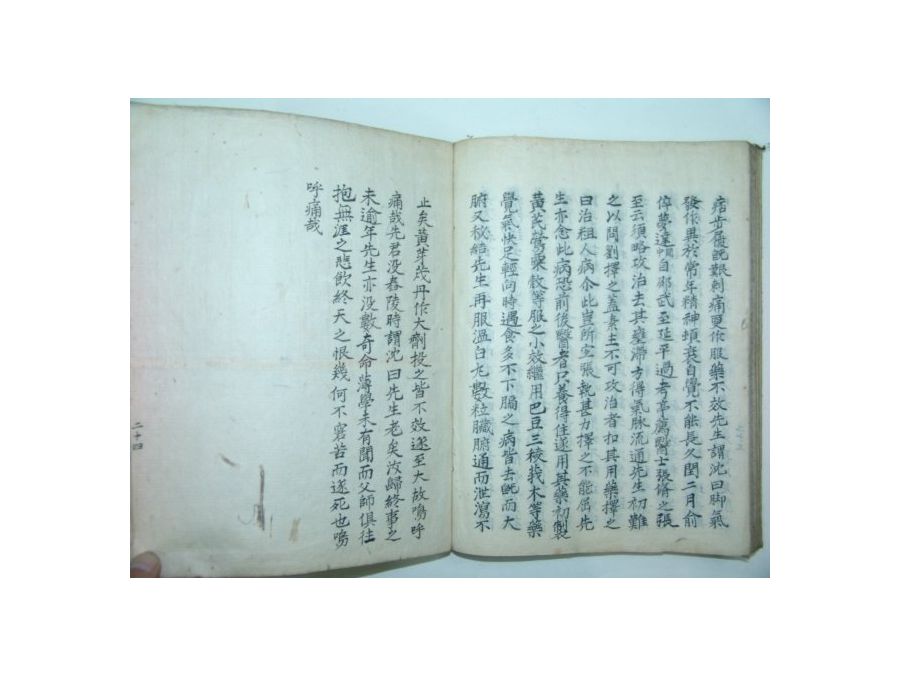 痞步履旣艱刺痛更作服藥不效先生謂沈曰脚氣
發作異於常年精神頓衰自覺不能長久閏二月俞
倅夢達自邵武至延平過考亭薦醫士張脩之張
至云須略攻治去其壅滯方得氣脉流通先生初難
之以問劉擇之盖素主不可攻治者扣其用藥擇之
曰治粗人病介此豈所宜張執甚力擇之不能屈先
生亦念此病恐前後醫者只養得住遂用其藥初製
黃芪鶯粟殼等服之小效繼用巴豆三稜莪朮等藥
覺氣快足輕向時遇食多不下膈之病皆去旣而大
腑又秘結先生再服溫白丸數粒臟腑通而泄瀉不
止矣黃芽歲丹作大劑投之皆不效遂至大故嗚呼
痛哉先君沒舂陵時謂沈曰先生老矣汝歸終事之
未逾年先生亦沒數奇命薄學未有聞而父師俱往
抱無涯之悲飮終天之恨幾何不窮苦而遂死也嗚
呼痛哉
二十四